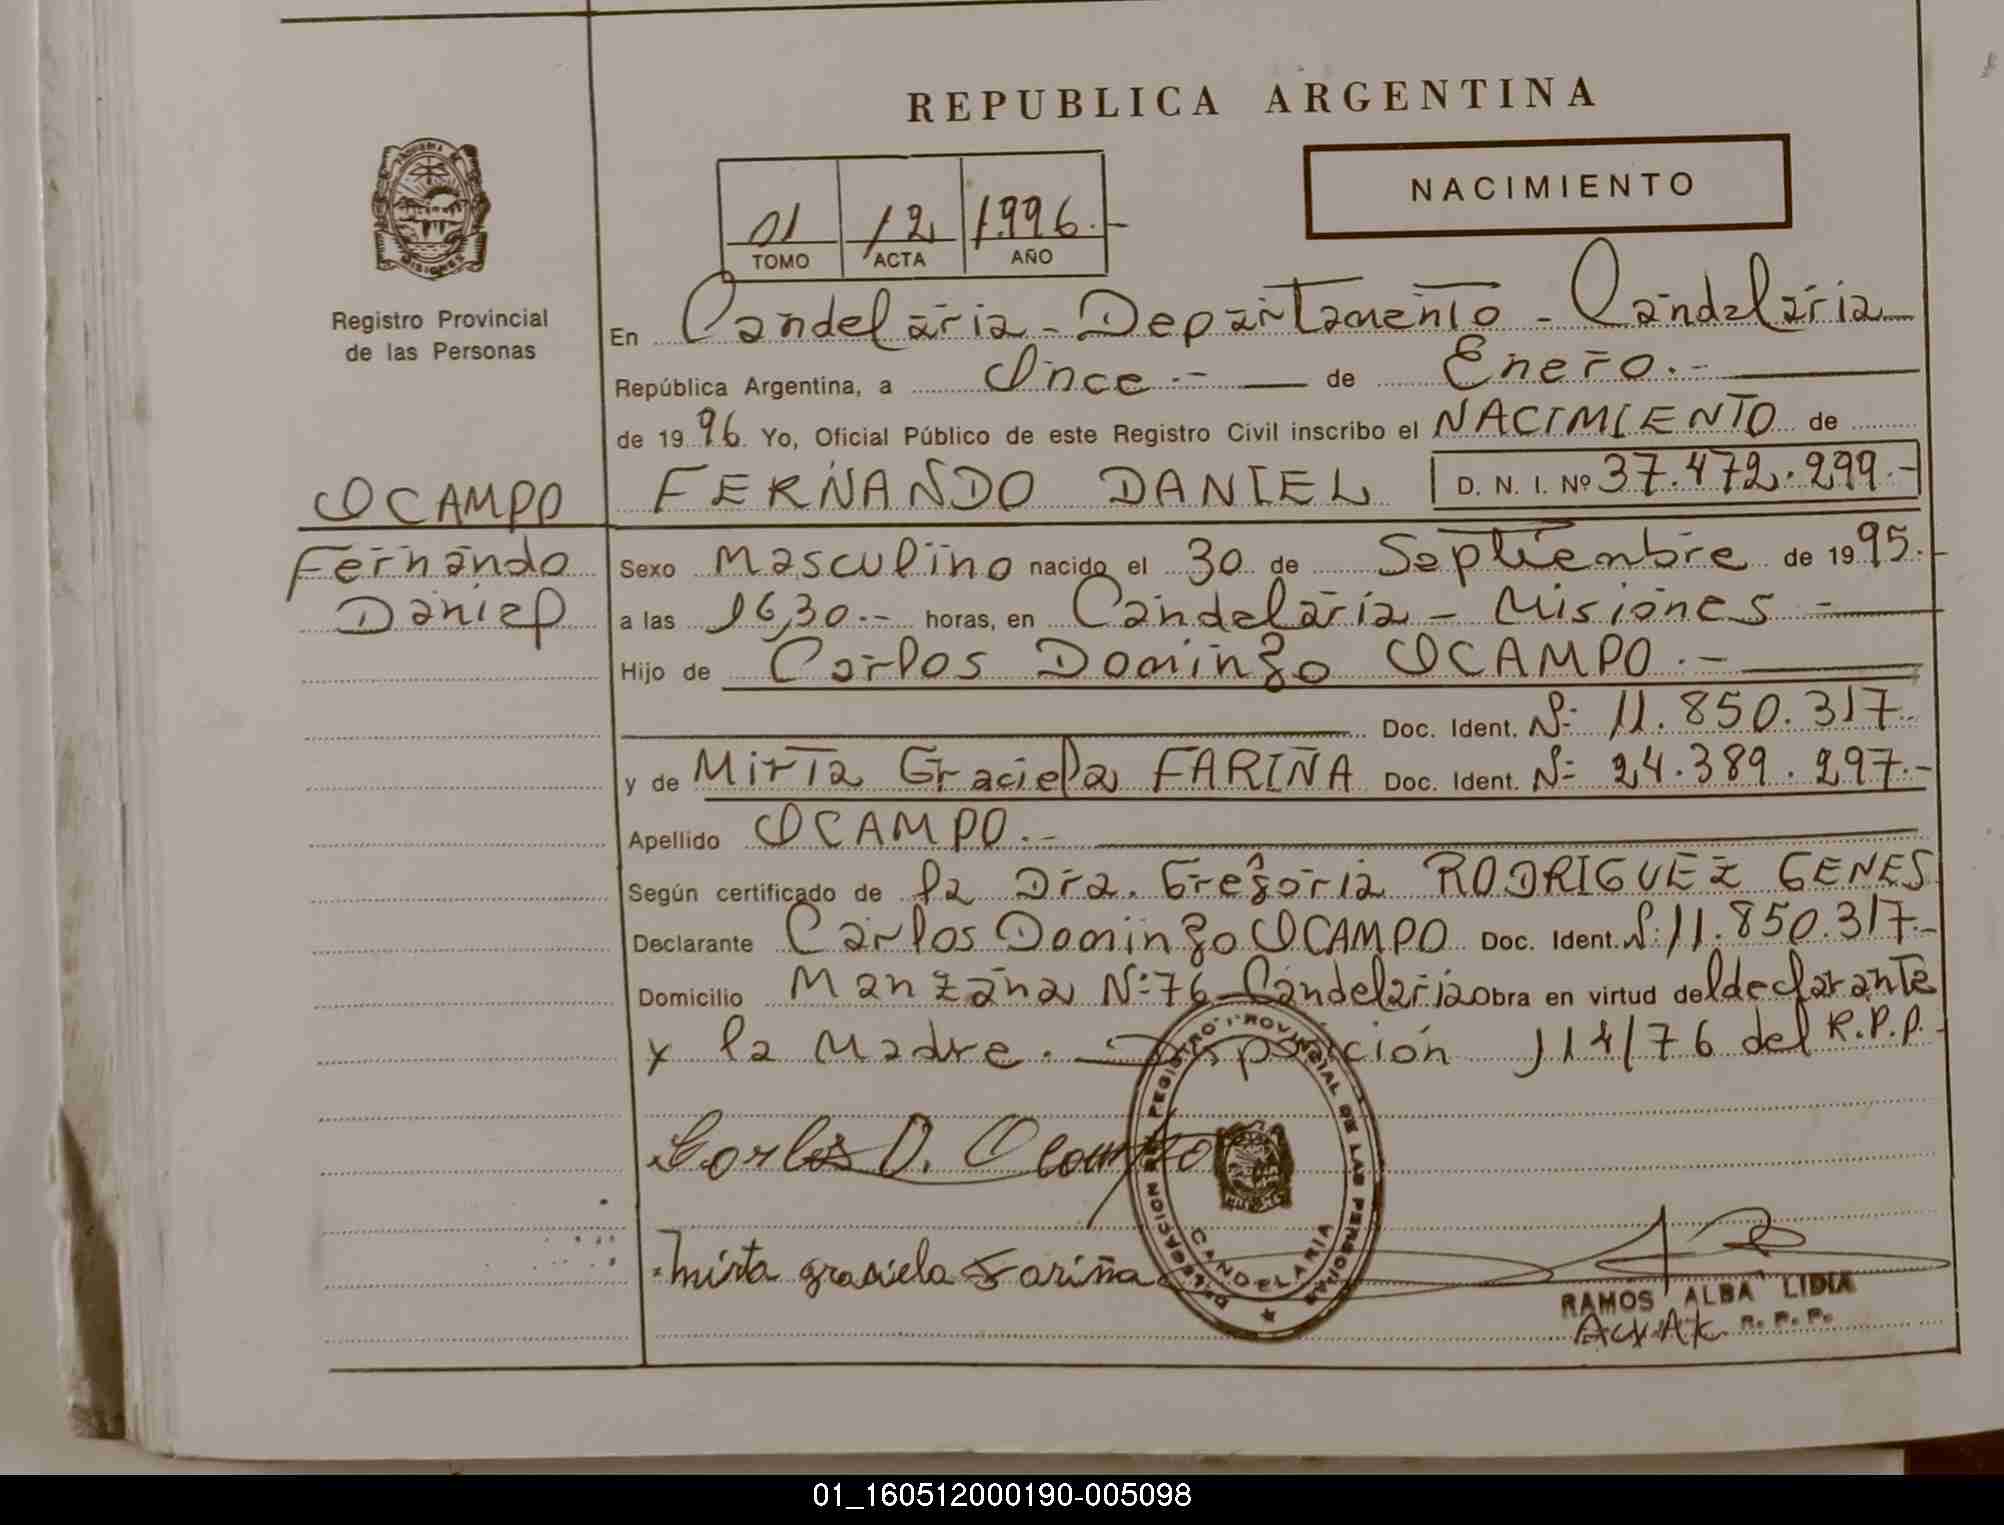 REPUBLICA ARGENTINA
NACIMIENTO
01 12 1.996.-
TOMO ACTA AÑO
Registro Provincial
de las Personas
En Candelaria - Departamento - Candelaria
República Argentina, a Once.- de Enero.-
de 1996. Yo, Oficial Público de este Registro Civil inscribo el NACIMIENTO de
FERNANDO DANIEL D. N. I. Nº 37.472.299.-
OCAMPO
Fernando
Daniel
Sexo Masculino nacido el 30 de Septiembre de 1995.-
a las 16,30.- horas, en Candelaria - Misiones -
Hijo de Carlos Domingo OCAMPO.-
Doc. Ident. Nº 11.850.317.-
y de Mirta Graciela FARIÑA Doc. Ident. Nº 24.389.297.-
Apellido OCAMPO.-
Según certificado de la Dra. Gregoria RODRIGUEZ GENES
Declarante Carlos Domingo OCAMPO Doc. Ident. Nº 11.850.317.-
Domicilio Manzana Nº 76 - Candelaria obra en virtud del declarante
y la Madre. - Disposición 114/76 del R.P.P.-
Carlos D. Ocampo
Mirta graciela Fariña
DELEGACION REGISTRO PROVINCIAL DE LAS PERSONAS
CANDELARIA
RAMOS ALBA LIDIA
R. P. P.
01_160512000190-005098